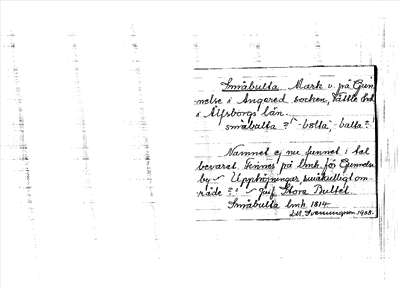 Småbulta Mark v. på Gun-
nelse i Angered socken, Vättle hd
i Älfsborgs län.
småbalta? -bolta, -balta?
Namnet ej nu funnet i tal
bevarat. Finnes på lmk. för Gunnelse
by – Upphöjningar, småkulligt om-
råde?? – Jmf. Stora Bultet.
Småbulta lmk 1814
1938.